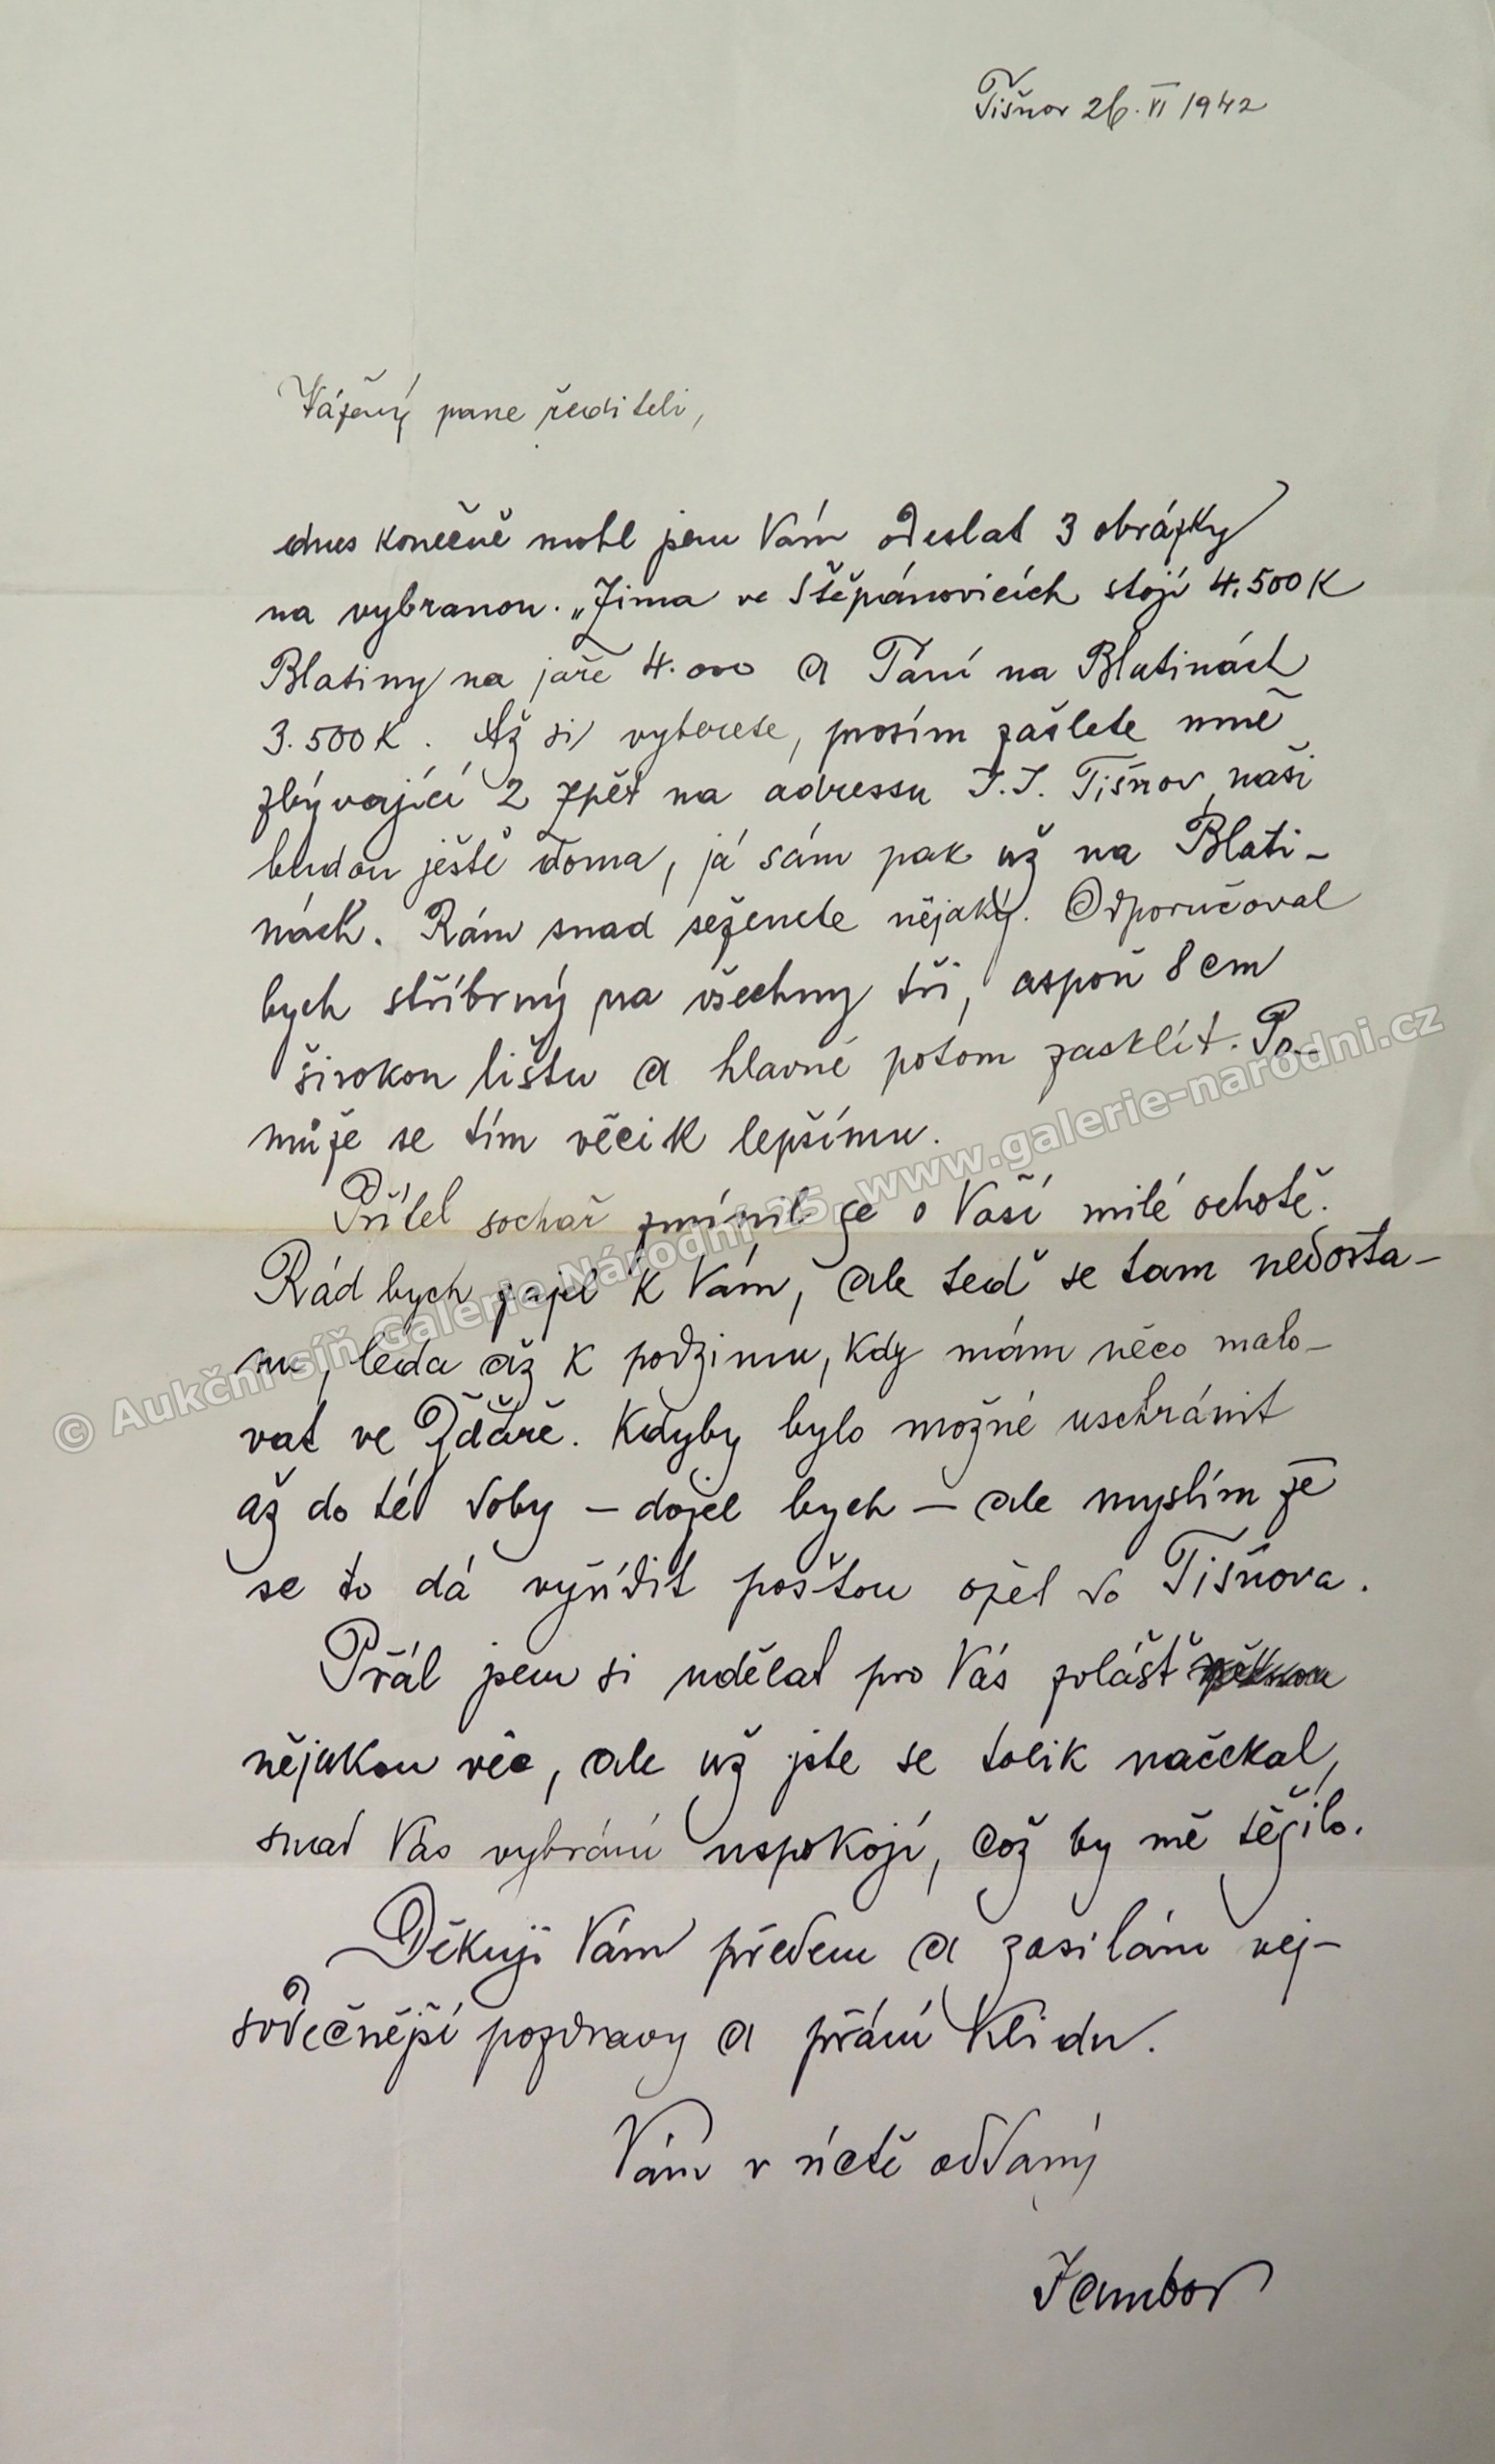 Tišnov 26. VI 1942
Vážený pane řediteli,
dnes konečně mohl jsem Vám odeslat 3 obrázky
na vybranou. „Zima ve Štěpánovicích stojí 4.500 K
Blatiny na jaře 4.000 a Tání na Blatinách
3.500 K. Až si vyberete, prosím zašlete mně
zbývající 2 zpět na adressu J.J. Tišnov, naši
budou ještě doma, já sám pak už na Blati-
nách. Rám snad seženete nějaký. Odporučoval
bych stříbrný na všechny tři, aspoň 8 cm
širokou lištu a hlavně potom zasklít. Po-
může se tím věci k lepšímu.
Přítel sochař zmínil se o Vaší milé ochotě.
Rád bych zajel k Vám, ale teď se tam nedosta-
nu, leda až k podzimu, kdy mám něco malo-
vat ve Žďáře. Kdyby bylo možné uschránit
až do té doby – dojel bych – ale myslím že
se to dá vyřídit poštou opět do Tišnova.
Přál jsem si udělat pro Vás zvlášť
nějakou věc, ale už jste se tolik načekal,
snad Vás vybrání uspokojí, což by mě těšilo.
Děkuji Vám předem a zasílám nej-
srdečnější pozdravy a přání klidu.
Vám v úctě oddaný
Jambor
© Aukční síň Galerie Národní 25, www.galerie-narodni.cz